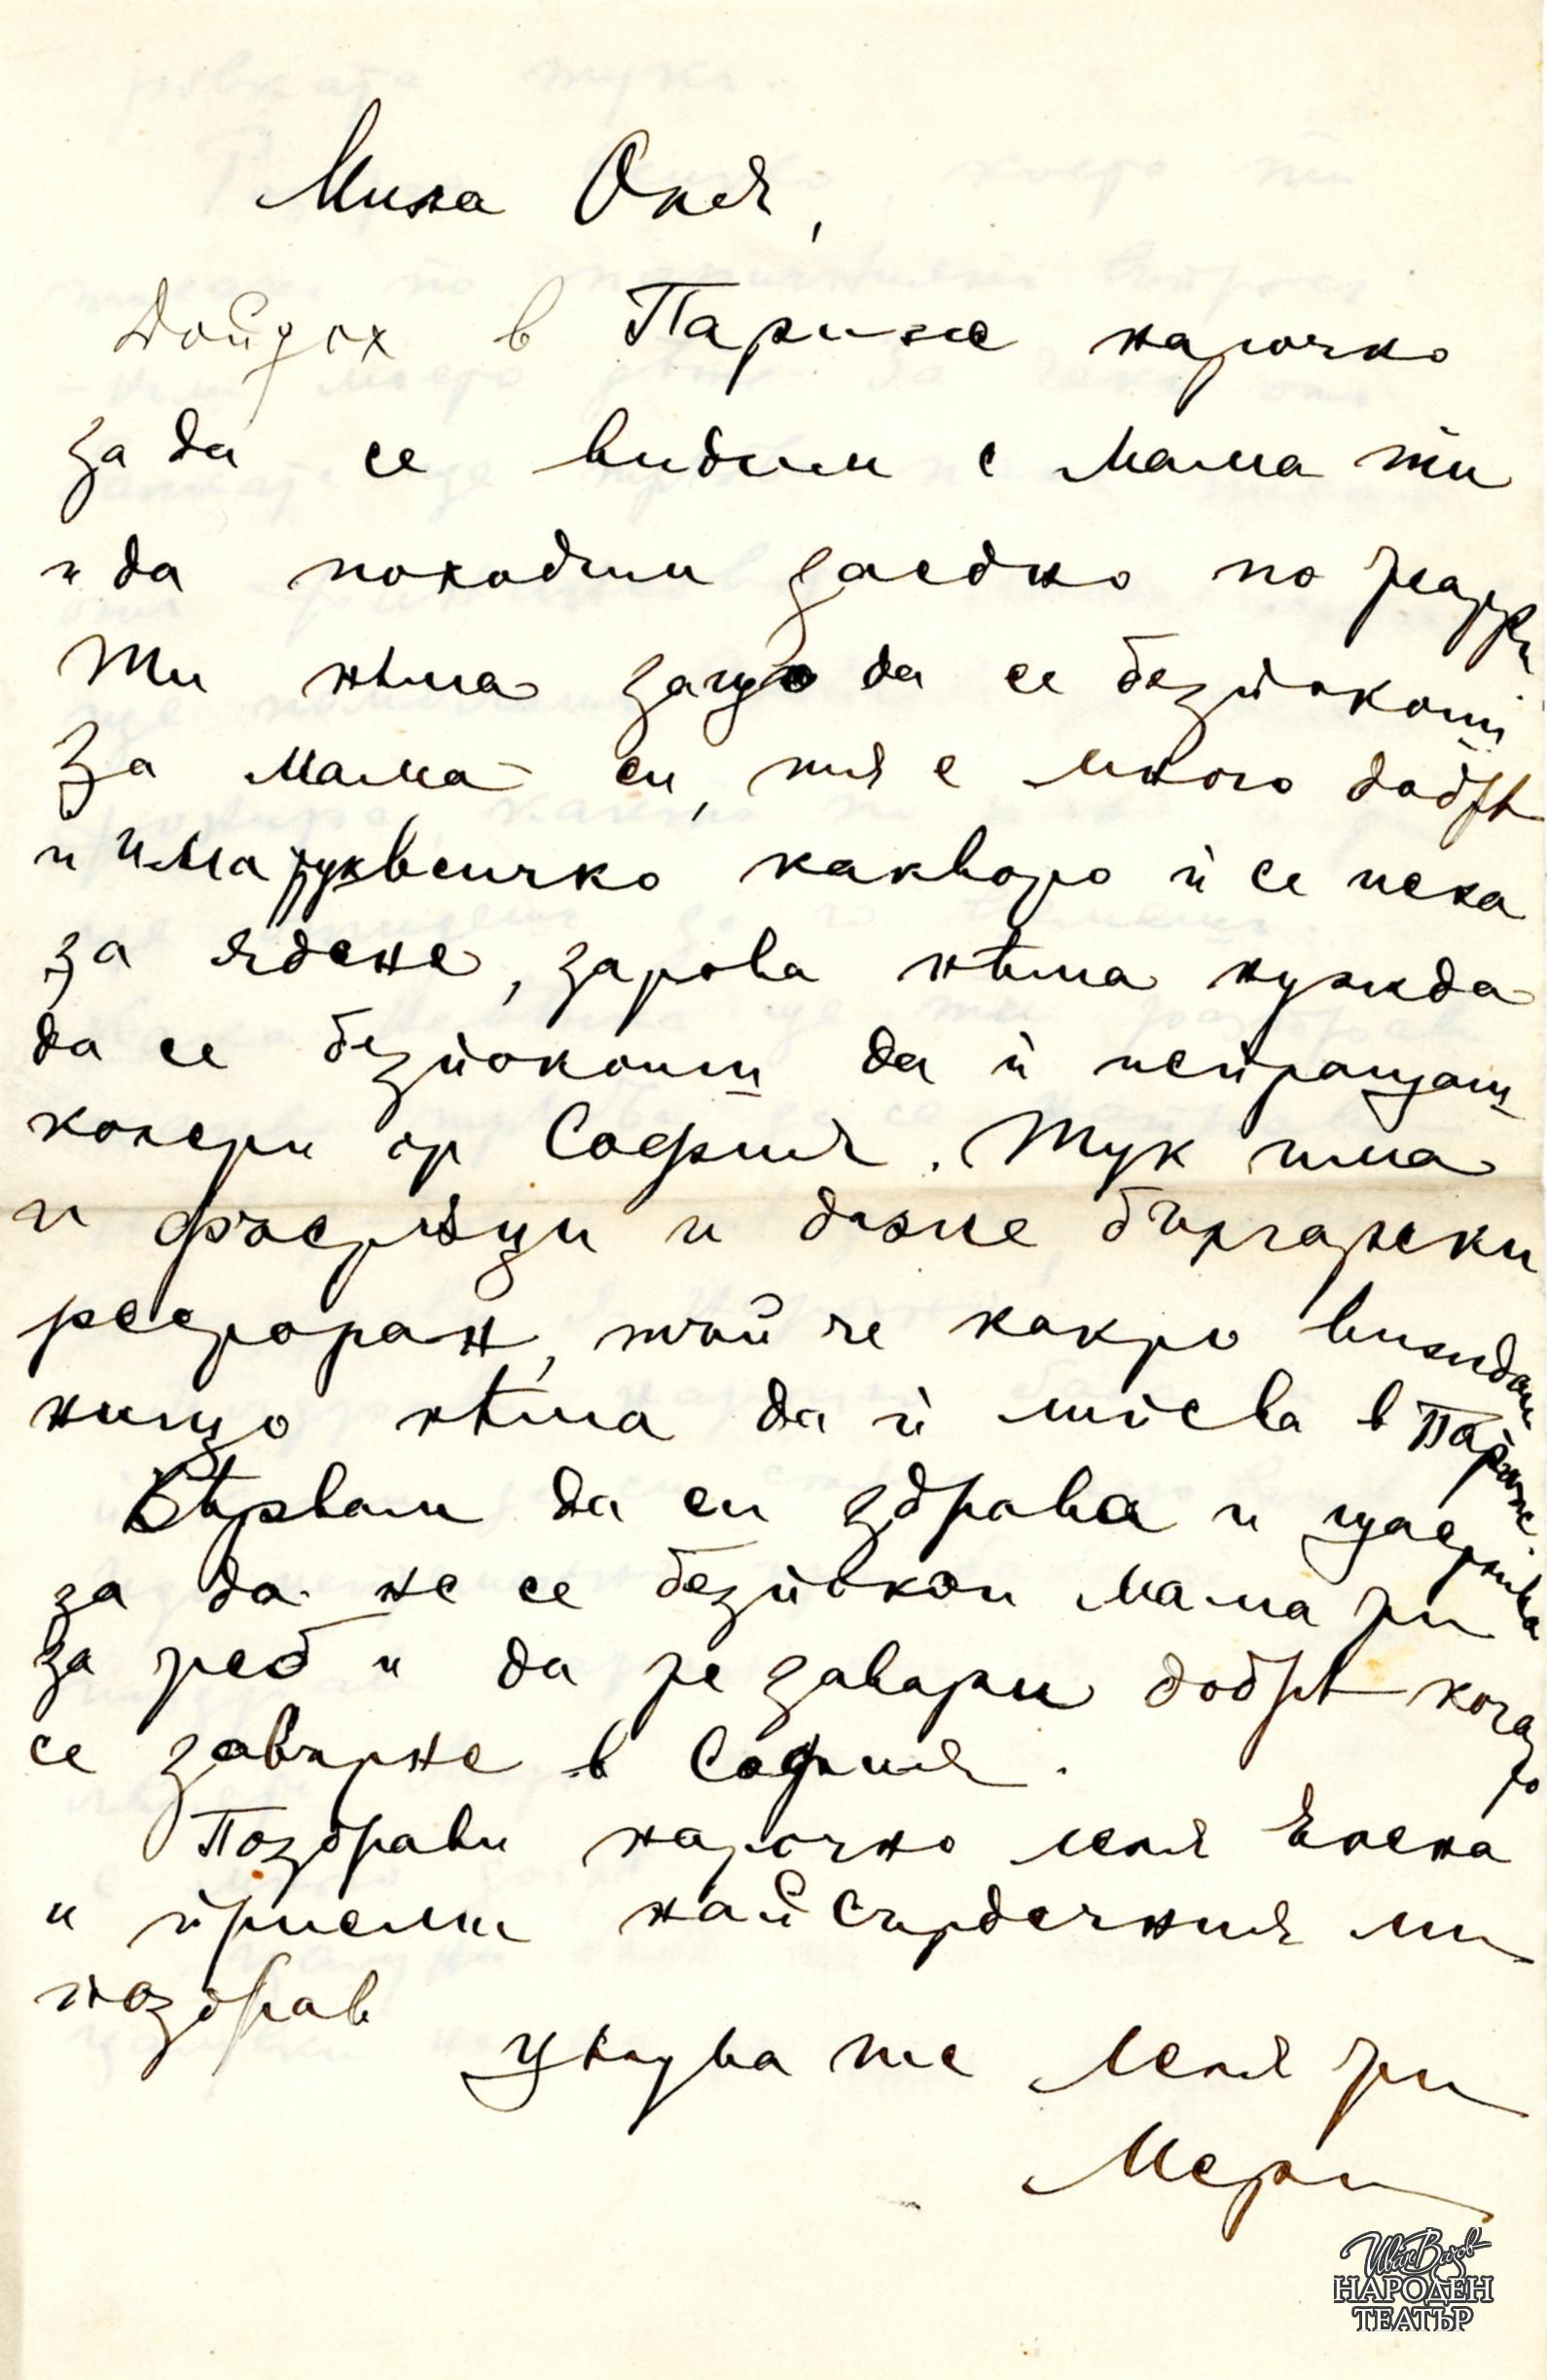 Мила Оля,
Дойдох в Париж нарочно
за да се видим с мама ти
и да походим заедно по театри
Ти нѣма защо да се безпокоиш
за мама си, тя е много добрѣ
и има тук всичко каквото ѝ се иска
за ядене, затова нѣма нужда
да се безпокоиш да ѝ испращаш
колети от София. Тук има
и фъстъци и даже български
ресторан, тъй че както виждаш
нищо нѣма да ѝ липсва в Париж.
Вѣрвам да си здрава и щастлива
за да не се безпокои мама ти
за теб и да те завари добрѣ когато
се завърне в София.
Поздрави нарочно леля Елена
и приеми най сърдечния ми
поздрав
Цѣлува те леля ти
Мери
Иван Вазов
НАРОДЕН
ТЕАТЪР